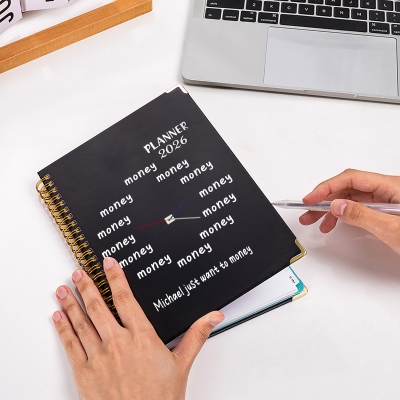 PLANNER
2026
money
money
money
money
money
money
money
money
money
money
money
money
Michael just want to money